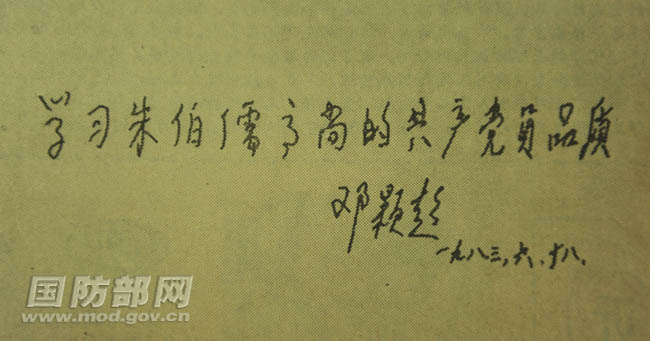 学习朱伯儒高尚的共产党員品质
邓颖超
一九八三，六、十八、
国防部网
www.mod.gov.cn